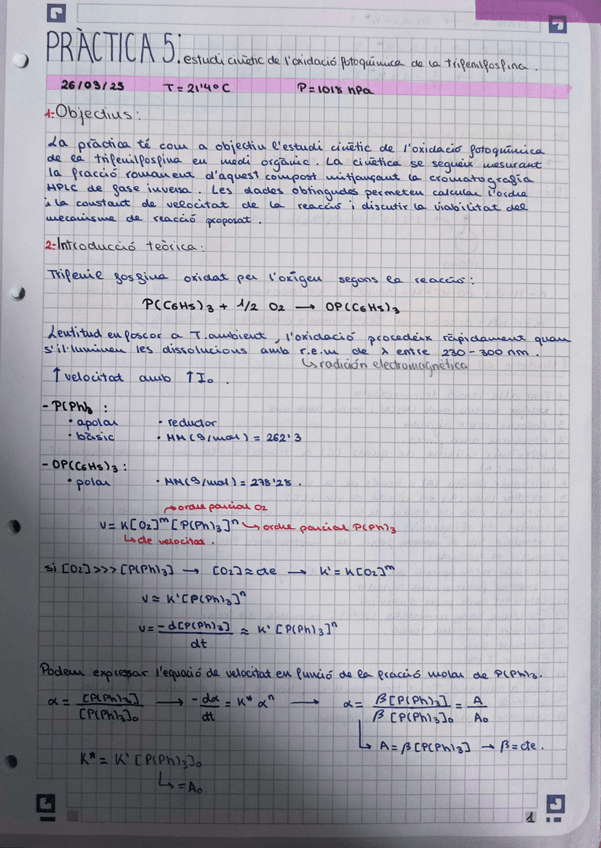 PRÀCTICA 5: estudi cinètic de l'oxidació fotoquímica de la trifenilfosfina.
26/09/25 T=21'4ºC P=1018 hPa
1.Objectius:
La pràctica té com a objectiu l'estudi cinètic de l'oxidació fotoquímica
de la trifenilfosfina en medi orgànic. La cinètica se segueix mesurant
la fracció romanent d'aquest compost mitjançant la cromatografia
HPLC de fase inversa. Les dades obtingudes permeten calcular l'ordre
i la constant de velocitat de la reacció i discutir la viabilitat del
mecanisme de reacció proposat.
2.Introducció teòrica:
Trifenil fosfina oxidat per l'oxigen segons la reacció:
P(C6H5)3 + 1/2 O2 → OP(C6H5)3
Lentitud en foscor a T. ambient, l'oxidació procedeix ràpidament quan
s'il·luminen les dissolucions amb r.e.m de λ entre 230-300 nm.
↳radición electromagnética
↑ velocitat amb ↑I₀.
- P(Ph)₃ :
• apolar • reductor
• bàsic • MM(g/mol) = 262'3
- OP(C6H5)3:
• polar • MM(g/mol) = 278'28.
→ordre parcial O2
v = K[O2]ᵐ[P(Ph)3]ⁿ ↳ ordre parcial P(Ph)3
↳de velocitat.
si [O2]>>>[P(Ph)3] → [O2]≈cte → K'=K[O2]ᵐ
v ≈ K'[P(Ph)3]ⁿ
v = -d[P(Ph)3]/dt ≈ K'[P(Ph)3]ⁿ
Podem expressar l'equació de velocitat en funció de la fracció molar de P(Ph)3.
α = [P(Ph)3]/[P(Ph)3]₀ → -dα/dt = K* αⁿ → α = β[P(Ph)3]/β[P(Ph)3]₀ = A/A₀
↳ A = β[P(Ph)3] → β=cte.
K* = K'[P(Ph)3]₀
↳ = A₀
1